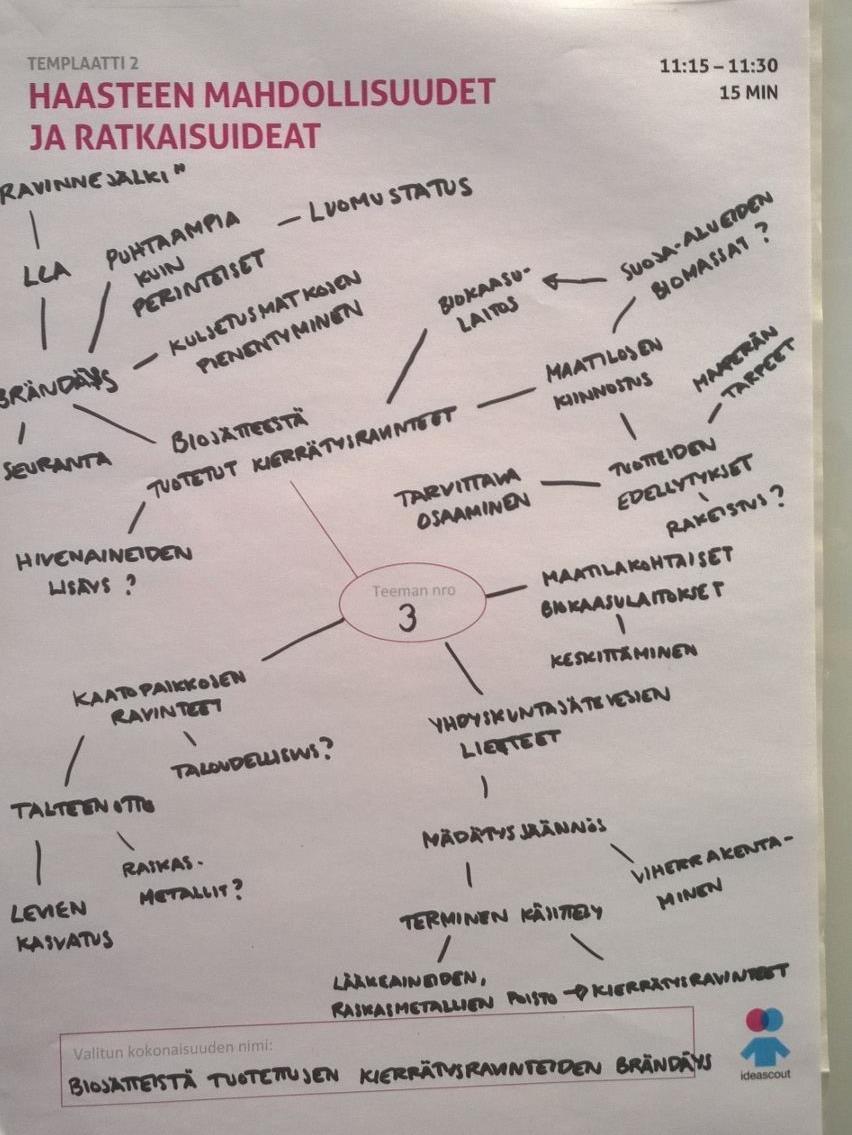 TEMPLAATTI 2
11:15 – 11:30
15 MIN
HAASTEEN MAHDOLLISUUDET
JA RATKAISUIDEAT
RAVINNEJÄLKI"
LCA
PUHTAAMPIA
KUIN
PERINTEISET
LUOMUSTATUS
KULJETUSMATKOJEN
PIENENTYMINEN
BRÄNDÄYS
SEURANTA
BIOKAASU-
LAITOS
SUOJA-ALUEIDEN
BIOMASSAT ?
MAATILOJEN
KIINNOSTUS
MAAPERÄN
TARPEET
BIOJÄTTEESTÄ
TUOTETUT KIERRÄTYSRAVINTEET
TARVITTAVA
OSAAMINEN
TUOTTEIDEN
EDELLYTYKSET
RAKEISTUS ?
HIVENAINEIDEN
LISÄYS ?
Teeman nro
3
MAATILAKOHTAISET
BIOKAASULAITOKSET
KESKITTÄMINEN
KAATOPAIKKOJEN
RAVINTEET
TALOUDELLISUUS?
TALTEENOTTO
RASKAS-
METALLIT?
LEVIEN
KASVATUS
YHDYSKUNTAJÄTEVESIEN
LIETTEET
MÄDÄTYSJÄÄNNÖS
VIHERRAKENTA-
MINEN
TERMINEN KÄSITTELY
LÄÄKEAINEIDEN,
RASKASMETALLIEN POISTO → KIERRÄTYSRAVINTEET
Valitun kokonaisuuden nimi:
BIOJÄTTEISTÄ TUOTETTUJEN KIERRÄTYSRAVINTEIDEN BRÄNDÄYS
ideascout